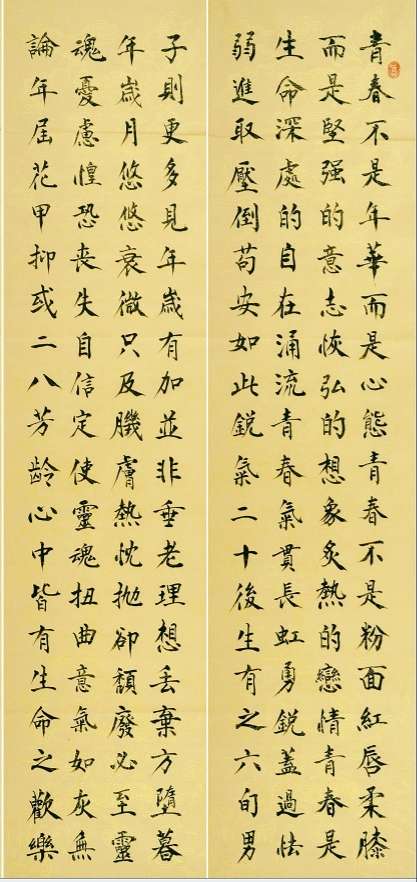 青春不是年華而是心態青春不是粉面紅唇柔膝
而是堅强的意志恢弘的想象炙熱的戀情青春是
生命深處的自在涌流青春氣貫長虹勇鋭蓋過怯
弱進取壓倒苟安如此鋭氣二十後生有之六旬男
子則更多見年歲有加並非垂老理想丢棄方墮暮
年歲月悠悠衰微只及膚熱忱抛卻頽廢必至靈
魂憂慮惶恐喪失自信定使靈魂扭曲意氣如灰無
論年屆花甲抑或二八芳齡心中皆有生命之歡樂